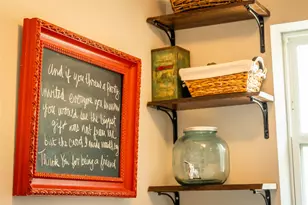 and if you threw a party
invited everyone you knew
you would see the biggest
gift would be from me
but the card attached would say
Thank you for being a friend